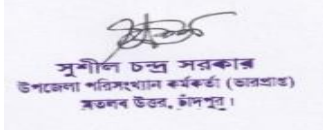 সুশীল চন্দ্র সরকার
উপজেলা পরিসংখ্যান কর্মকর্তা (ভারপ্রাপ্ত)
মতলব উত্তর, চাঁদপুর।